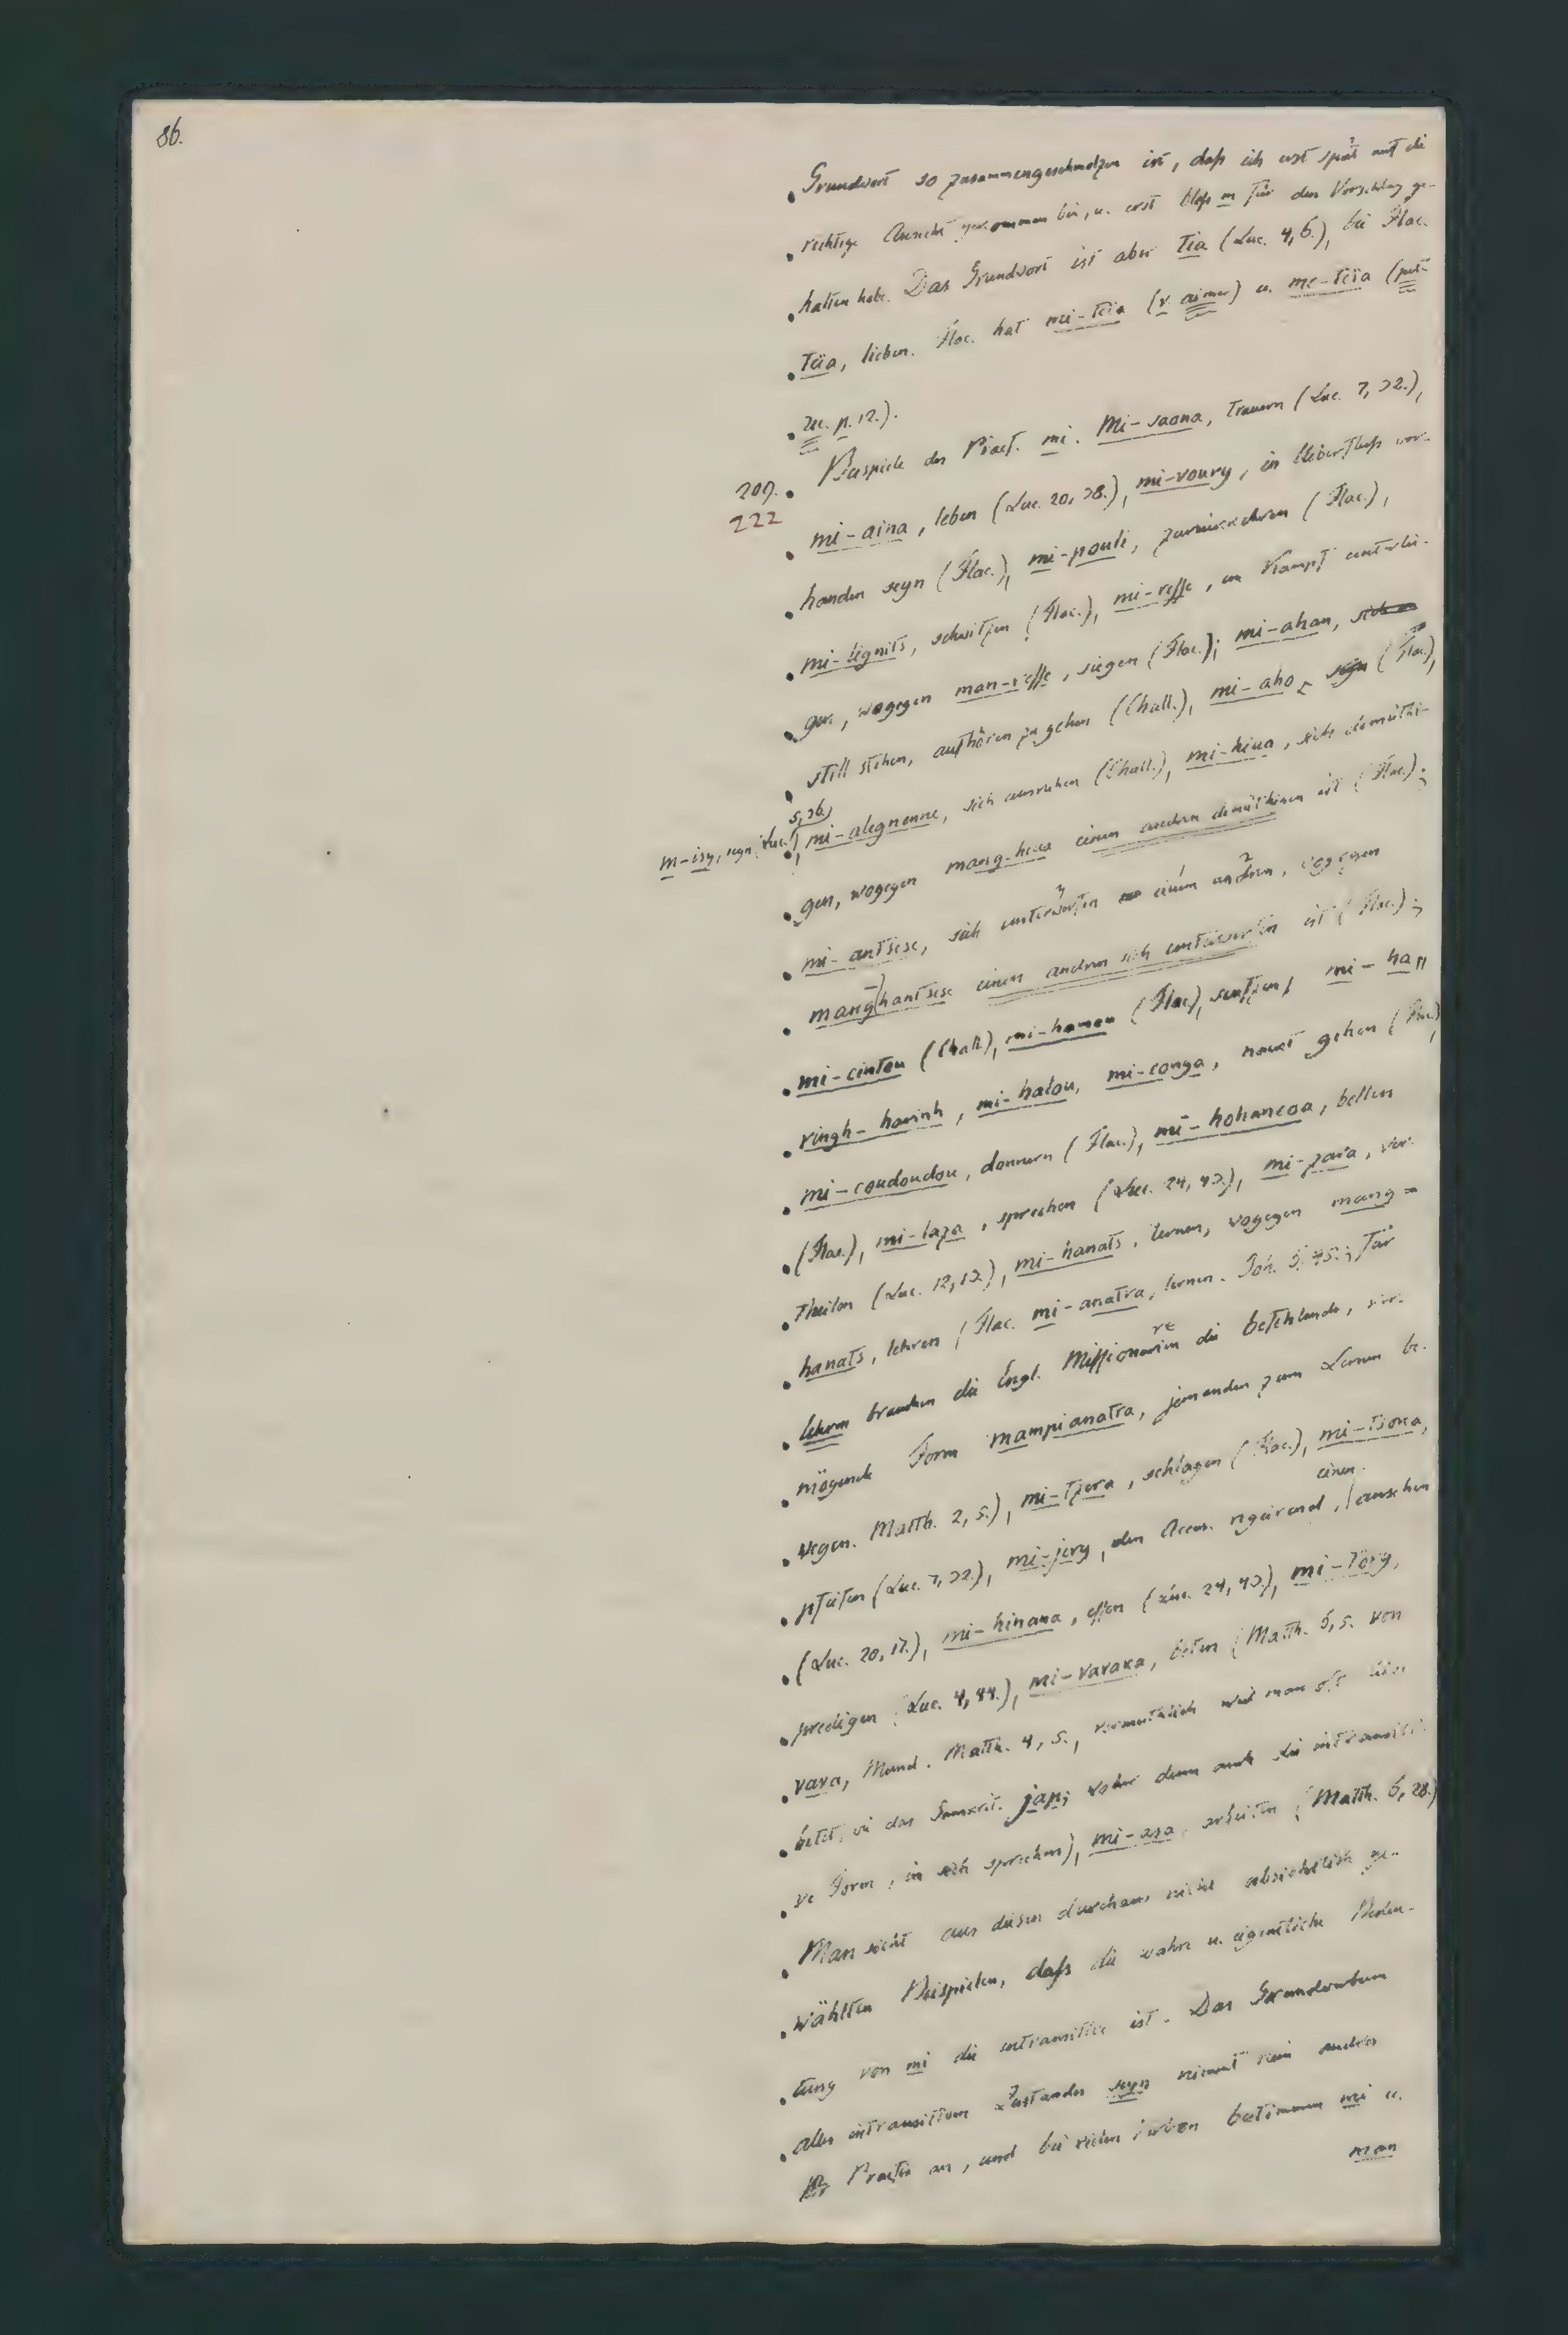 86.
Grundwort so zusammengeschmolzen ist, daß ich erst spät auf die
richtige Ansicht gekommen bin, u. erst bloß m für den Vorschlag ge-
halten habe. Das Grundwort ist aber tia (Luc. 4, 6.), bei Flac.
téïa, lieben. Flac. hat mi-téïa (v. aimer) u. me-téïa (pet.
p. 12.).
209.
222
Beispiele des Praef. mi. Mi-saona, trauern (Luc. 7, 32.),
mi-aina, leben (Luc. 20, 38.), mi-voury, in Ueberfluß vor-
handen seyn (Flac.), mi-pouli, zurückkehren (Flac.),
mi-lignits, schwitzen (Flac.), mi-resse, im Kampf unterlie-
gen, wogegen man-resse, siegen (Flac.); mi-ahan,
still stehen, aufhören zu gehen (Chall.), mi-aho, seyn (Flac.),
m-isy, seyn (Luc. 5, 36.)
mi-alegnenne, sich ausruhen (Chall.), mi-hiua, sich demüthi-
gen, wogegen mang-hiua einen andren demüthigen ist (Flac.);
mi-antsese, sich unterwerfen einem andren, wogegen
manghantsese einen andren sich unterwerfen ist (Flac.);
mi-cintou (Chall.), mi-hamou (Flac.), seufzen, mi-han
ringh-harinh, mi-halou, mi-conga, nackt gehen (Flac.),
mi-coudoudou, donnern (Flac.), mi-hohancoa, bellen
(Flac.), mi-laza, sprechen (Luc. 24, 43.), mi-zara, ver-
theilen (Luc. 12, 13.), mi-hanats, lernen, wogegen mang-
hanats, lehren (Flac. mi-anatra, lernen. Joh. 6, 45.; für
lehren brauchen die Engl. Missionarien die befehlende, ver-
re
mögende Form mampianatra, jemanden zum Lernen be-
wegen. Matth. 2, 5.), mi-tzera, schlagen (Flac.), mi-tsona,
pfeifen (Luc. 7, 32.), mi-jery, den Accus. regierend, einen ansehen
(Luc. 20, 17.), mi-hinana, essen (Luc. 24, 43.), mi-tory,
predigen (Luc. 4, 44.), mi-vavaka, beten (Matth. 6, 5. von
vava, Mund. Matth. 4, 5., vermuthlich weil man oft
betet, wie das Sanskrit. jap; woher denn auch die intransiti-
ve Form, in sich sprechen), mi-asa, arbeiten (Matth. 6, 28.)
Man sieht aus diesen durchaus nicht absichtlich ge-
wählten Beispielen, daß die wahre u. eigentliche Bedeu-
tung von mi die intransitive ist. Das Grundverbum
alles intransitiven Zustandes seyn nimmt kein andres
Praefix an, und bei vielen Verben bestimmen mi u.
man